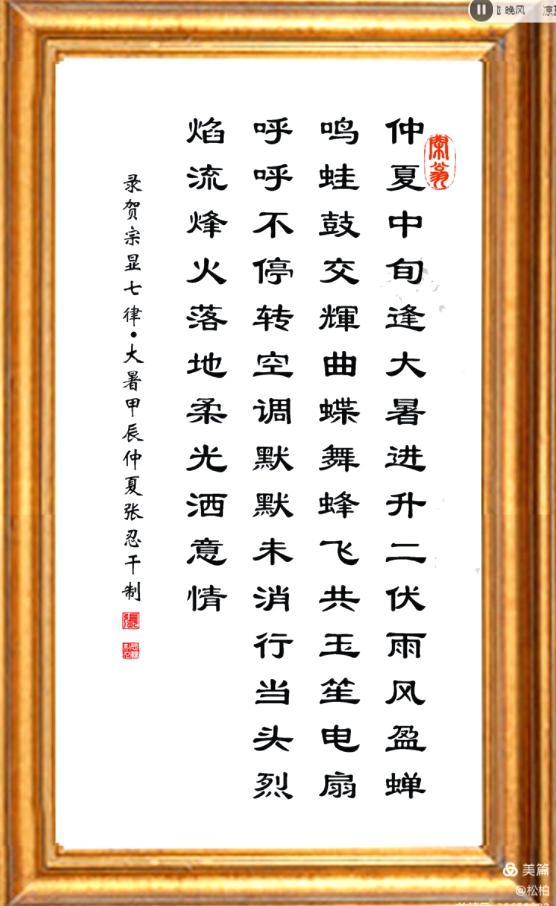 仲夏中旬逢大暑进升二伏雨风盈蝉
鸣蛙鼓交輝曲蝶舞蜂飞共玉笙电扇
呼呼不停转空调默默未消行当头烈
焰流烽火落地柔光洒意情
录贺宗显七律•大暑甲辰仲夏张忍干制
晚风
美篇
@松柏